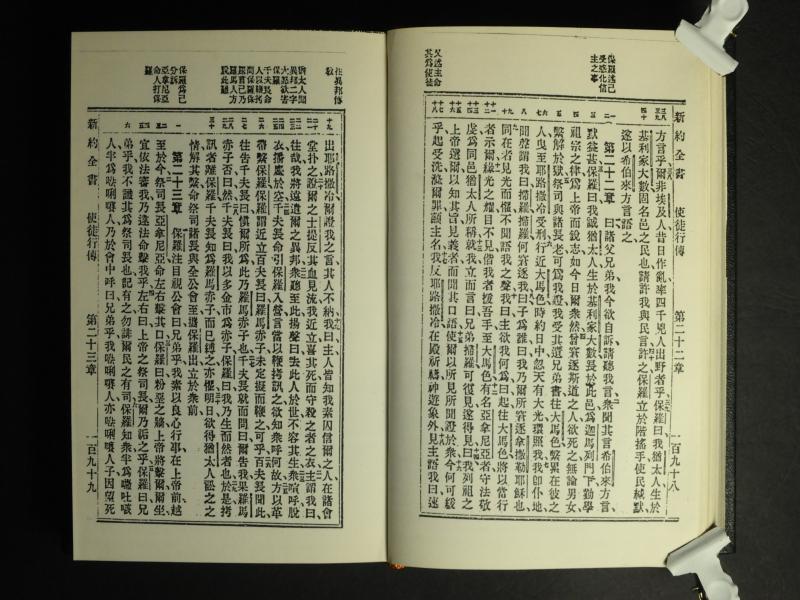 新約全書 使徒行傳 第二十二章 一百九十八
保羅述己
受感化信
主之事
又為主命
其為使徒
方言乎爾非埃及人昔日作亂率四千兇人出野者乎保羅曰我猶太人生於
基利家大數固名邑之民也請許我與民言許之保羅立於階搖手使民緘默
遂以希伯來方言語之
第二十二章 曰諸父兄弟我今欲自訴請聽我言衆聞其言希伯來方言
默益甚保羅曰我誠猶太人生於基利家大數長於此邑為迦馬列門下勤學
祖宗之律為上帝而銳志如今日爾衆然曾窘逐斯道之人欲死之無論男女
繫解於獄祭司與諸長老可為我證我受其遺兄弟書往大馬色繫累在彼之
人曳至耶路撒冷受刑行近大馬色時約日中忽天有大光環照我我即仆地
聞聲謂我曰掃羅掃羅何窘逐我曰子為誰曰我乃爾所窘逐拿撒勒耶穌也
同在者見光而懼不聞語我之聲我曰主欲我何為曰起往大馬色將以當行
者示爾緣光之燿目不見偕我者援吾手至大馬色有名亞拿尼亞者守法敬
虔為同邑猶太人所稱就我立而言曰兄弟掃羅可復見遂得見曰我列祖之
上帝選爾以知其旨見義者而聞其口語使爾以所見所聞證於衆今何可緩
乎起受洗滌爾罪籲主名我反耶路撒冷在殿祈禱神遊象外見主語我曰速
往異邦傳
教
猶太人聞
異邦二字
大怒欲害
保羅
千夫長命
人以鞭拷
問保羅保
羅言己乃
羅馬人方
脫此難
保羅為己
分訴
亞拿尼亞
命人打保
羅
出耶路撒冷爾證我之言其人不納我曰主人皆知我素囚信爾之人在諸會
堂扑之證爾之士提反其血見流我近立喜其死而守殺之者之衣主謂我曰
往哉我將遠遣爾之異邦衆聽至此揚聲曰去此人於世不容其生衆喧呼脫
衣播塵於空千夫長命引保羅入營言當以鞭拷訊之欲知衆呼何故方以革
帶繫保羅保羅謂近立百夫長曰羅馬赤子未定擬而鞭之可乎百夫長聞此
往告千夫長曰慎爾所為此乃羅馬赤子也千夫長就而問曰爾告我果羅馬
赤子否曰然千夫長曰我以多金市為赤子保羅曰我乃生而然者也於是拷
訊者離保羅千夫長知為羅馬赤子而已縛之亦懼明日欲得猶太人訟之之
情解其繫命祭司諸長與全公會至攜保羅出立於衆前
第二十三章 保羅注目視公會曰兄弟乎我素以良心行事在上帝前越
至於今祭司長亞拿尼亞命左右擊其口保羅曰粉堊之牆上帝將擊爾爾坐
宜依法審我乃違法命擊我乎左右曰上帝之祭司長爾乃詬之乎保羅曰兄
弟乎我不識其為祭司長也記有之勿誹爾民之有司保羅知衆半為𠵽吐咳
人半為㗒唎㘔人乃於會中呼曰兄弟乎我㗒唎㘔人亦㗒唎㘔人子因望死
新約全書 使徒行傳 第二十三章 一百九十九